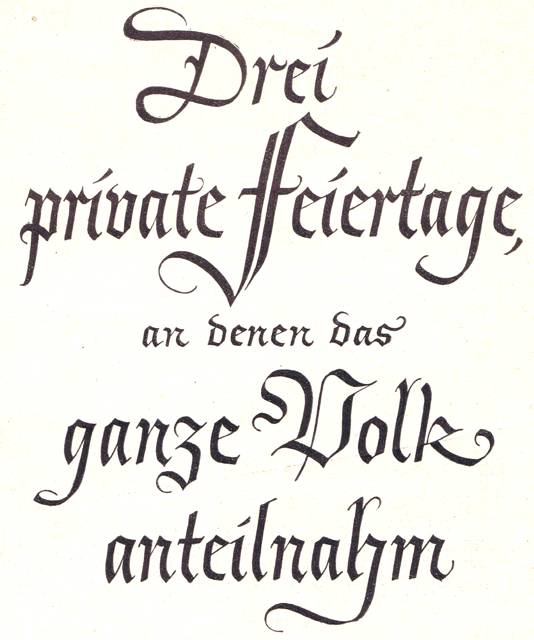 Drei
private Feiertage,
an denen das
ganze Volk
anteilnahm